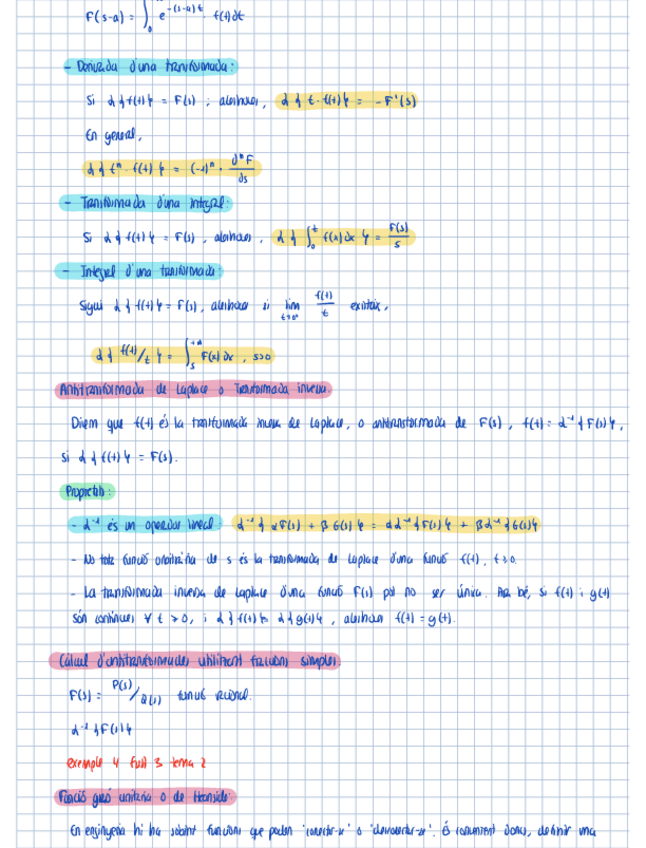 F(s-a) = ∫₀ e^-(s-a)t · f(t)dt
- Derivada d'una transformada:
Si L{f(t)} = F(s) ; aleshores, L{t·f(t)} = -F'(s)
En general,
L{tⁿ · f(t)} = (-1)ⁿ · dⁿF/ds
- Transformada d'una integral:
Si L{f(t)} = F(s) , aleshores , L{∫₀ᵗ f(x)dx} = F(s)/s
- Integral d'una transformada:
Sigui L{f(t)} = F(s), aleshores si lim t→0⁺ f(t)/t existeix,
L{f(t)/t} = ∫ₛ^+∞ F(x)dx , s>0
Antitransformada de Laplace o Transformada inversa.
Diem que f(t) és la transformada inversa de Laplace, o antitransformada de F(s) , f(t) = L⁻¹{F(s)},
si L{f(t)} = F(s).
Propietats:
- L⁻¹ és un operador lineal: L⁻¹{αF(s) + βG(s)} = αL⁻¹{F(s)} + βL⁻¹{G(s)}
- No tota funció arbitrària de s és la transformada de Laplace d'una funció f(t), t>0.
- La transformada inversa de Laplace d'una funció F(s) pot no ser única. Ara bé, si f(t) i g(t)
són contínues ∀ t >0, i L{f(t)} = L{g(t)} , aleshores f(t) = g(t).
Càlcul d'antitransformades utilitzant fraccions simples.
F(s) = P(s)/Q(s) funció racional.
L⁻¹{F(s)}
exemple 4 full 3 tema 2
Funció graó unitària o de Heaviside:
En enginyeria hi ha sovint funcions que poden "conectar-se" o "desconectar-se". És convenient doncs, definir una